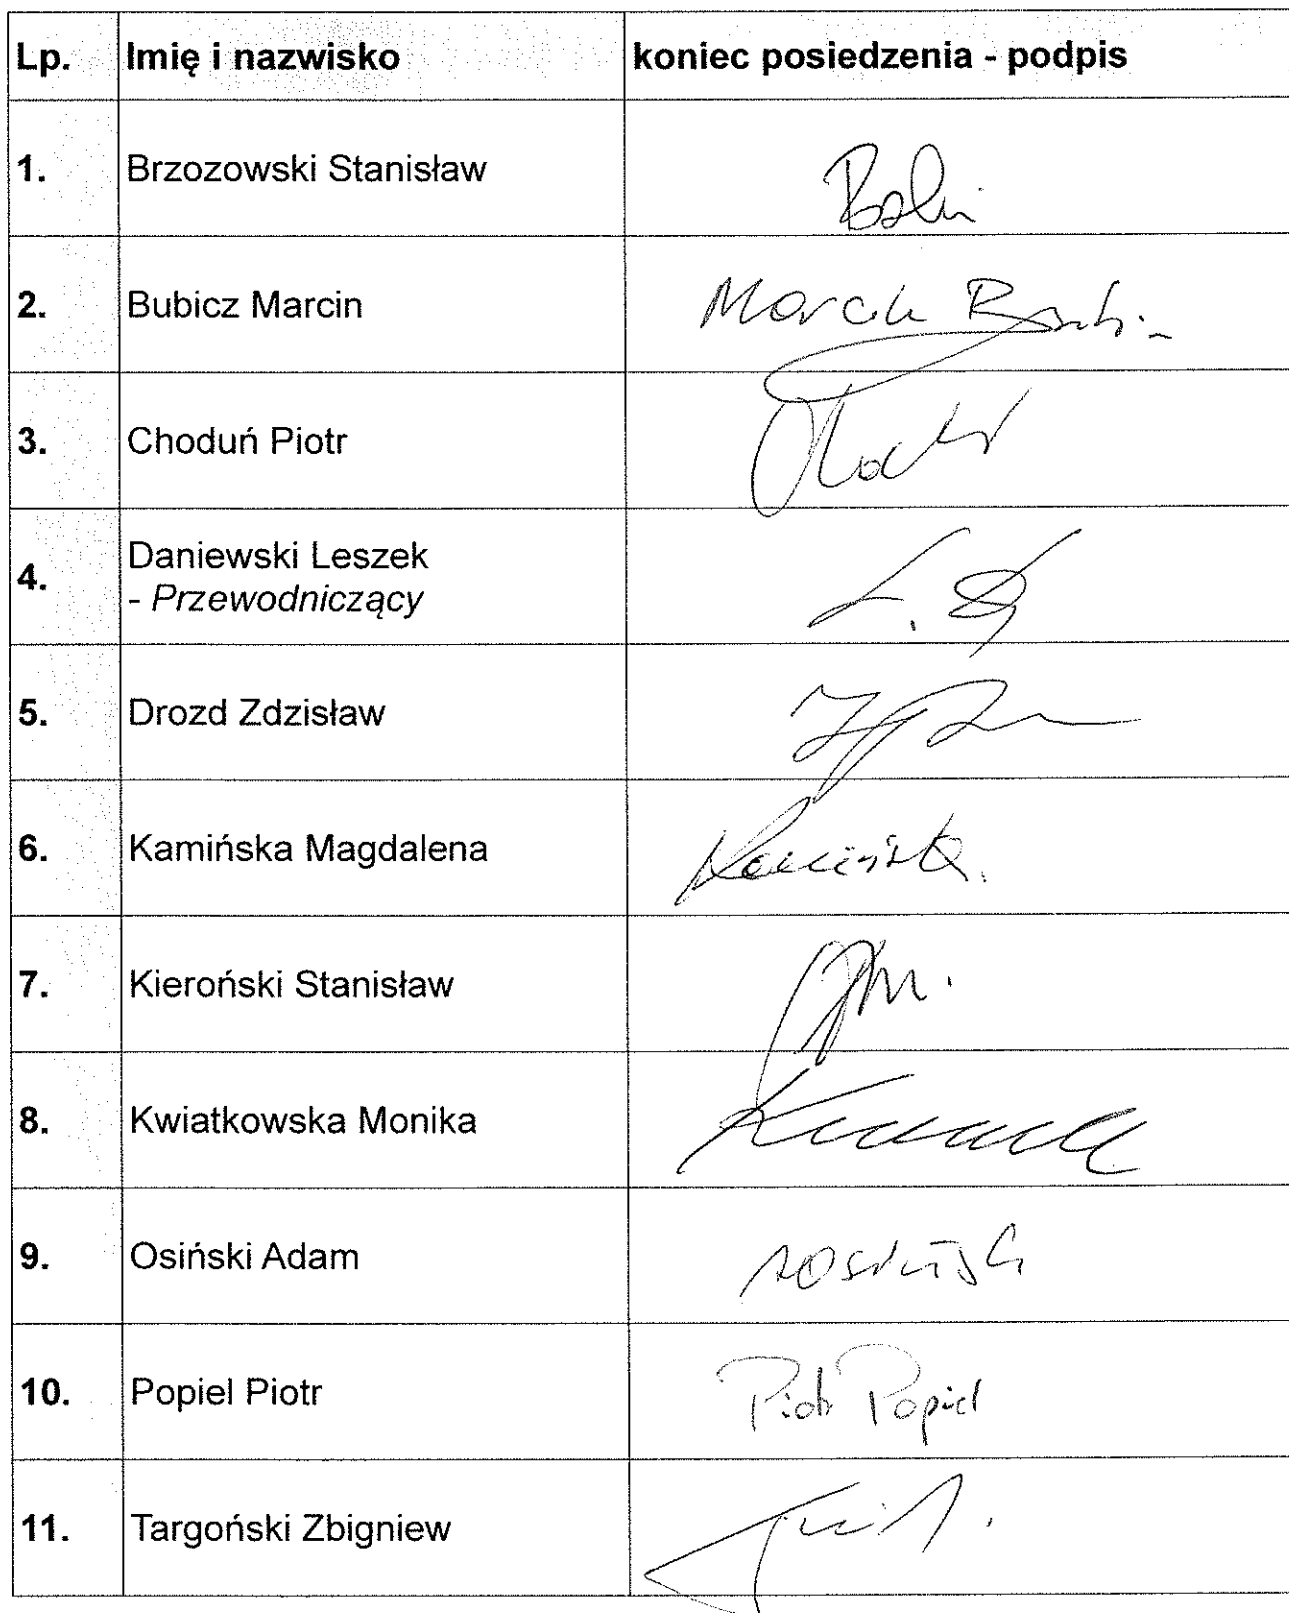 Lp. Imię i nazwisko koniec posiedzenia - podpis
1. Brzozowski Stanisław
2. Bubicz Marcin
3. Choduń Piotr
4. Daniewski Leszek
- Przewodniczący
5. Drozd Zdzisław
6. Kamińska Magdalena
7. Kieroński Stanisław
8. Kwiatkowska Monika
9. Osiński Adam
10. Popiel Piotr Piotr Popiel
11. Targoński Zbigniew